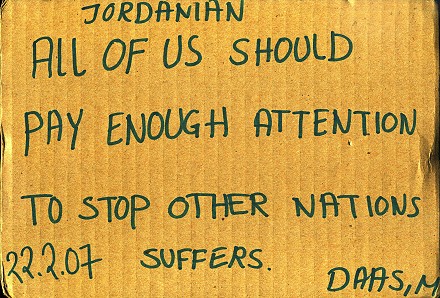 JORDANIAN
ALL OF US SHOULD
PAY ENOUGH ATTENTION
TO STOP OTHER NATIONS
SUFFERS.
22.2.07
DAAS, M